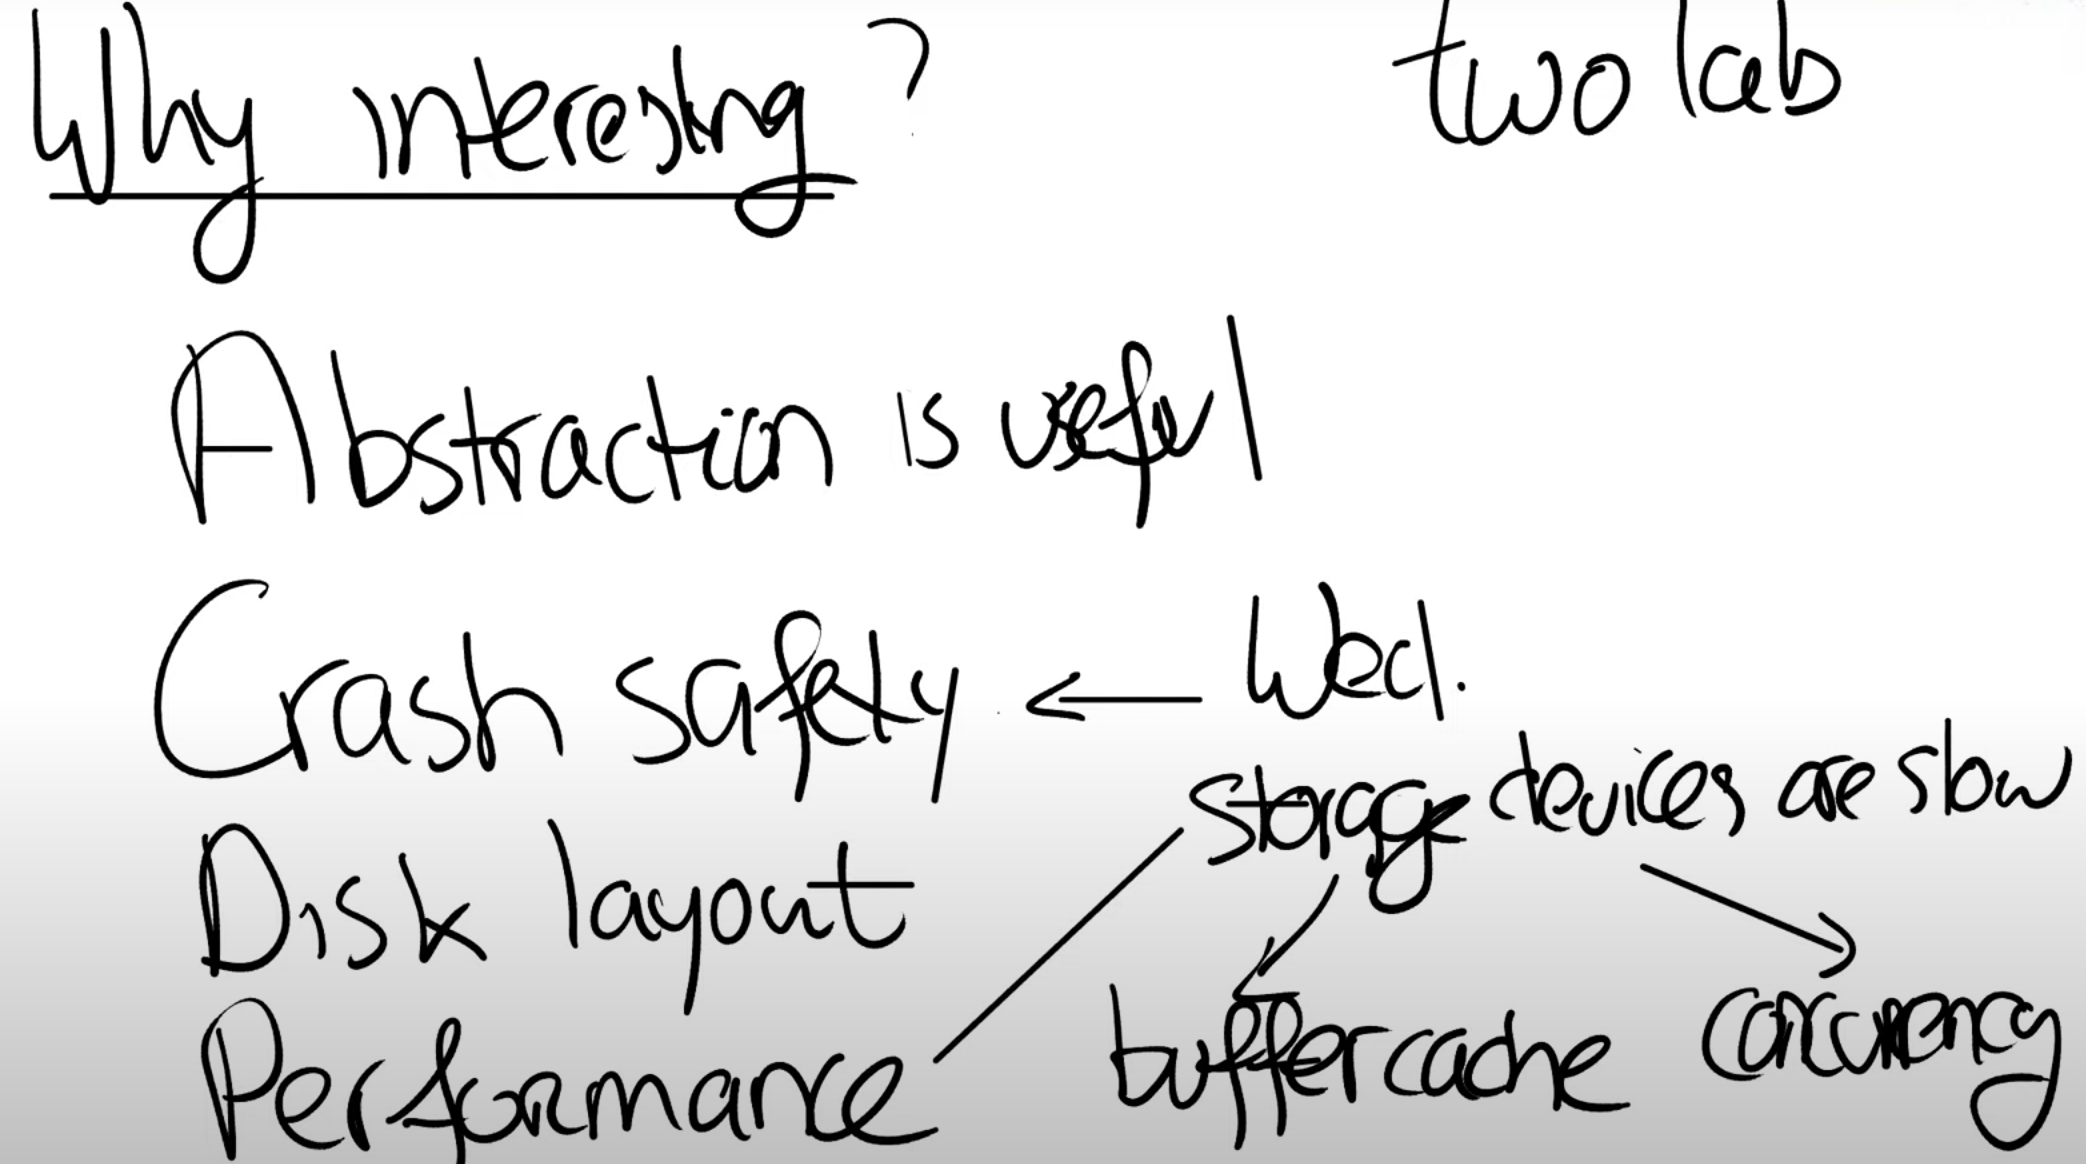 Why interesting?
two lab
Abstraction is useful
Crash safety ← Wed.
Disk layout
storage devices are slow
Performance
buffer cache
concurrency